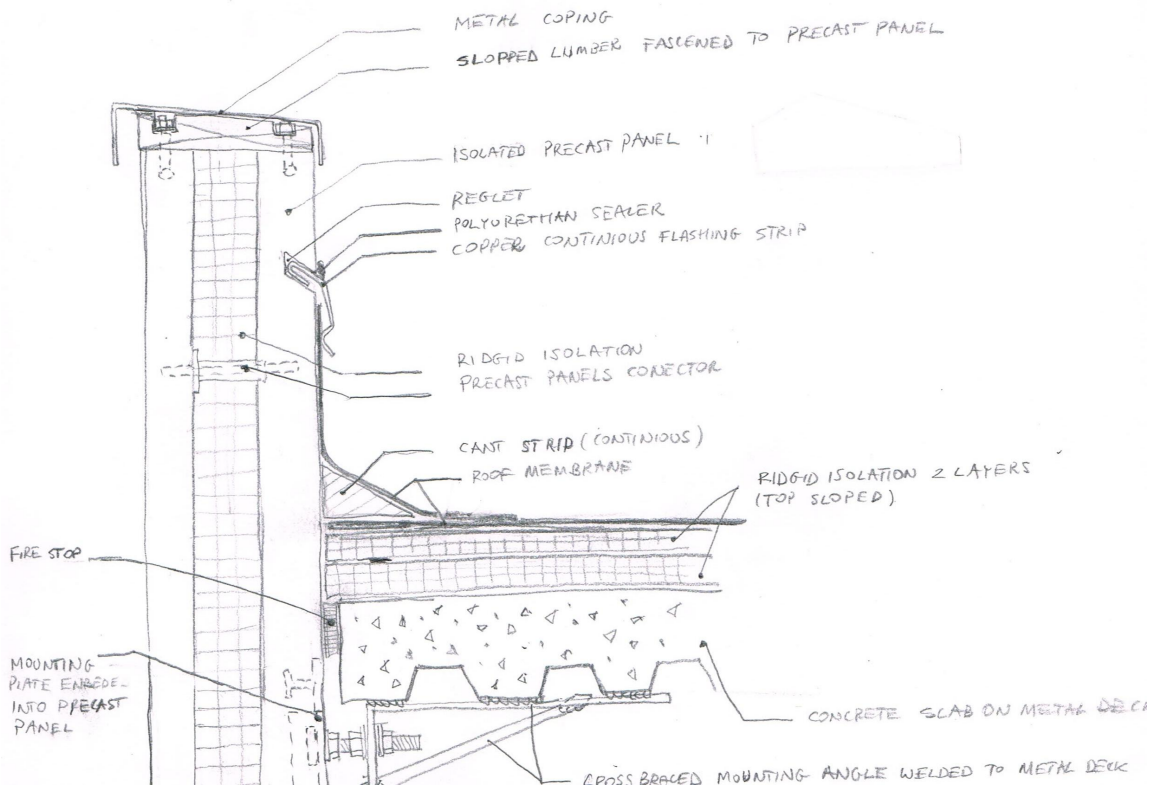 METAL COPING
SLOPPED LUMBER FASCENED TO PRECAST PANEL
ISOLATED PRECAST PANEL
REGLET
POLYURETHAN SEALER
COPPER CONTINIOUS FLASHING STRIP
RIDGID ISOLATION
PRECAST PANELS CONECTOR
CANT STRIP (CONTINIOUS)
ROOF MEMBRANE
RIDGID ISOLATION 2 LAYERS
(TOP SLOPED)
FIRE STOP
MOUNTING
PLATE ENBEDE-
INTO PRECAST
PANEL
CONCRETE SLAB ON METAL DECK
CROSS BRACED MOUNTING ANGLE WELDED TO METAL DECK